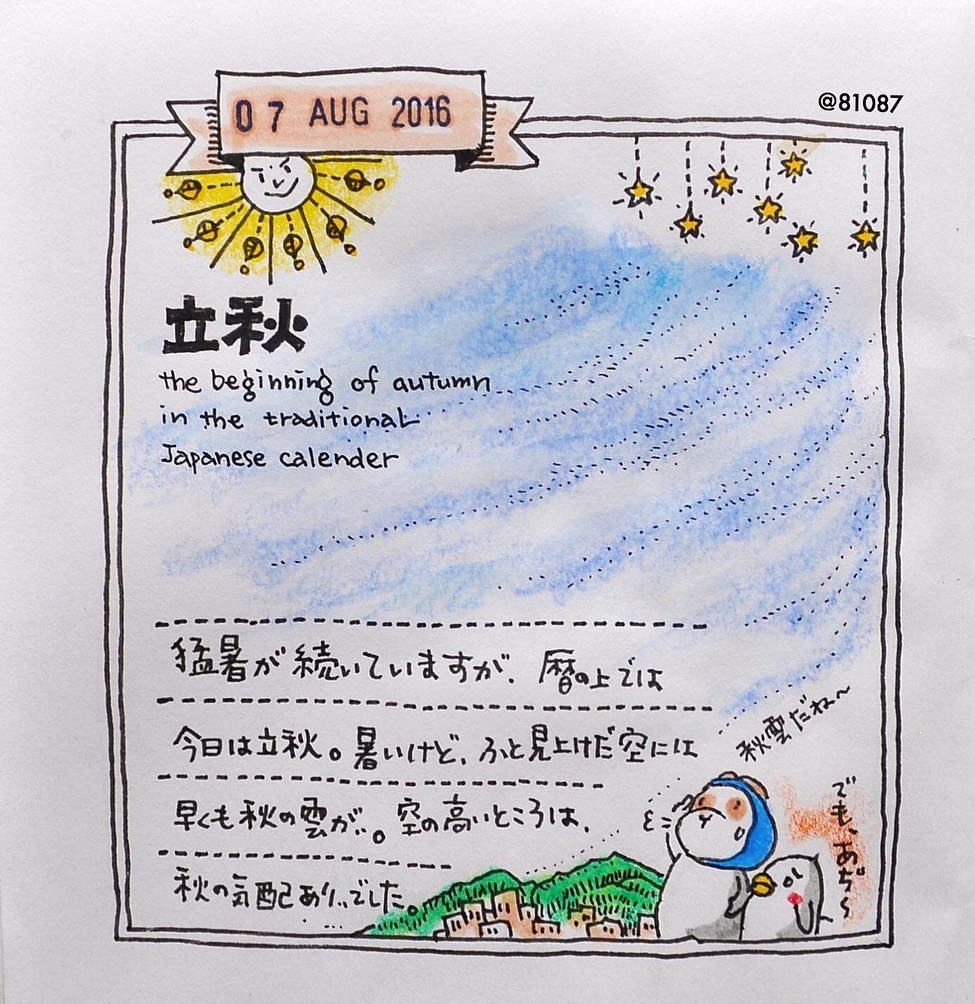 07 AUG 2016
@81087
立秋
the beginning of autumn
in the traditional
Japanese calender
猛暑が続いていますが、暦の上では
今日は立秋。暑いけど、ふと見上げた空には
早くも秋の雲が…。空の高いところは、
秋の気配あり…でした。
秋雲だね〜
でも、あぢ〜